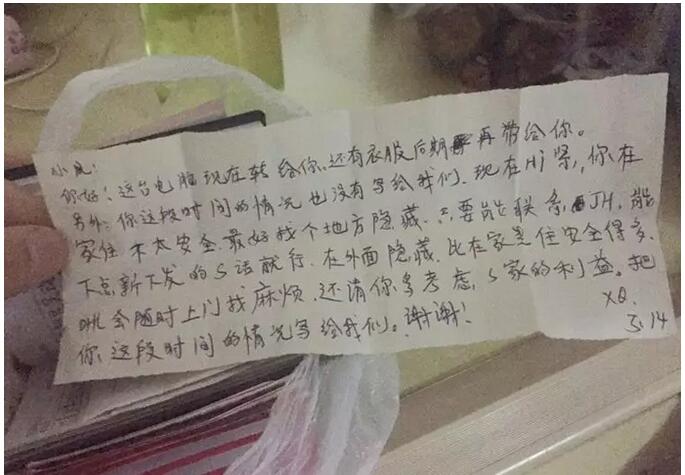 小凤：
你好！这台电脑现在转给你，还有衣服后期再带给你。
另外：你这段时间的情况也没有写给我们。现在Hi紧，你在
家住不太安全，最好找个地方隐藏。只要能联系JH，能
下点新下发的S话就行。在外面隐藏，比在家里住安全得多，
会随时上门找麻烦，还请你多考虑，s家的利益。把
你这段时间的情况写给我们。谢谢！
XQ.
3.14